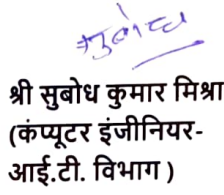 सुबोध
श्री सुबोध कुमार मिश्रा
(कंप्यूटर इंजीनियर-
आई.टी. विभाग )